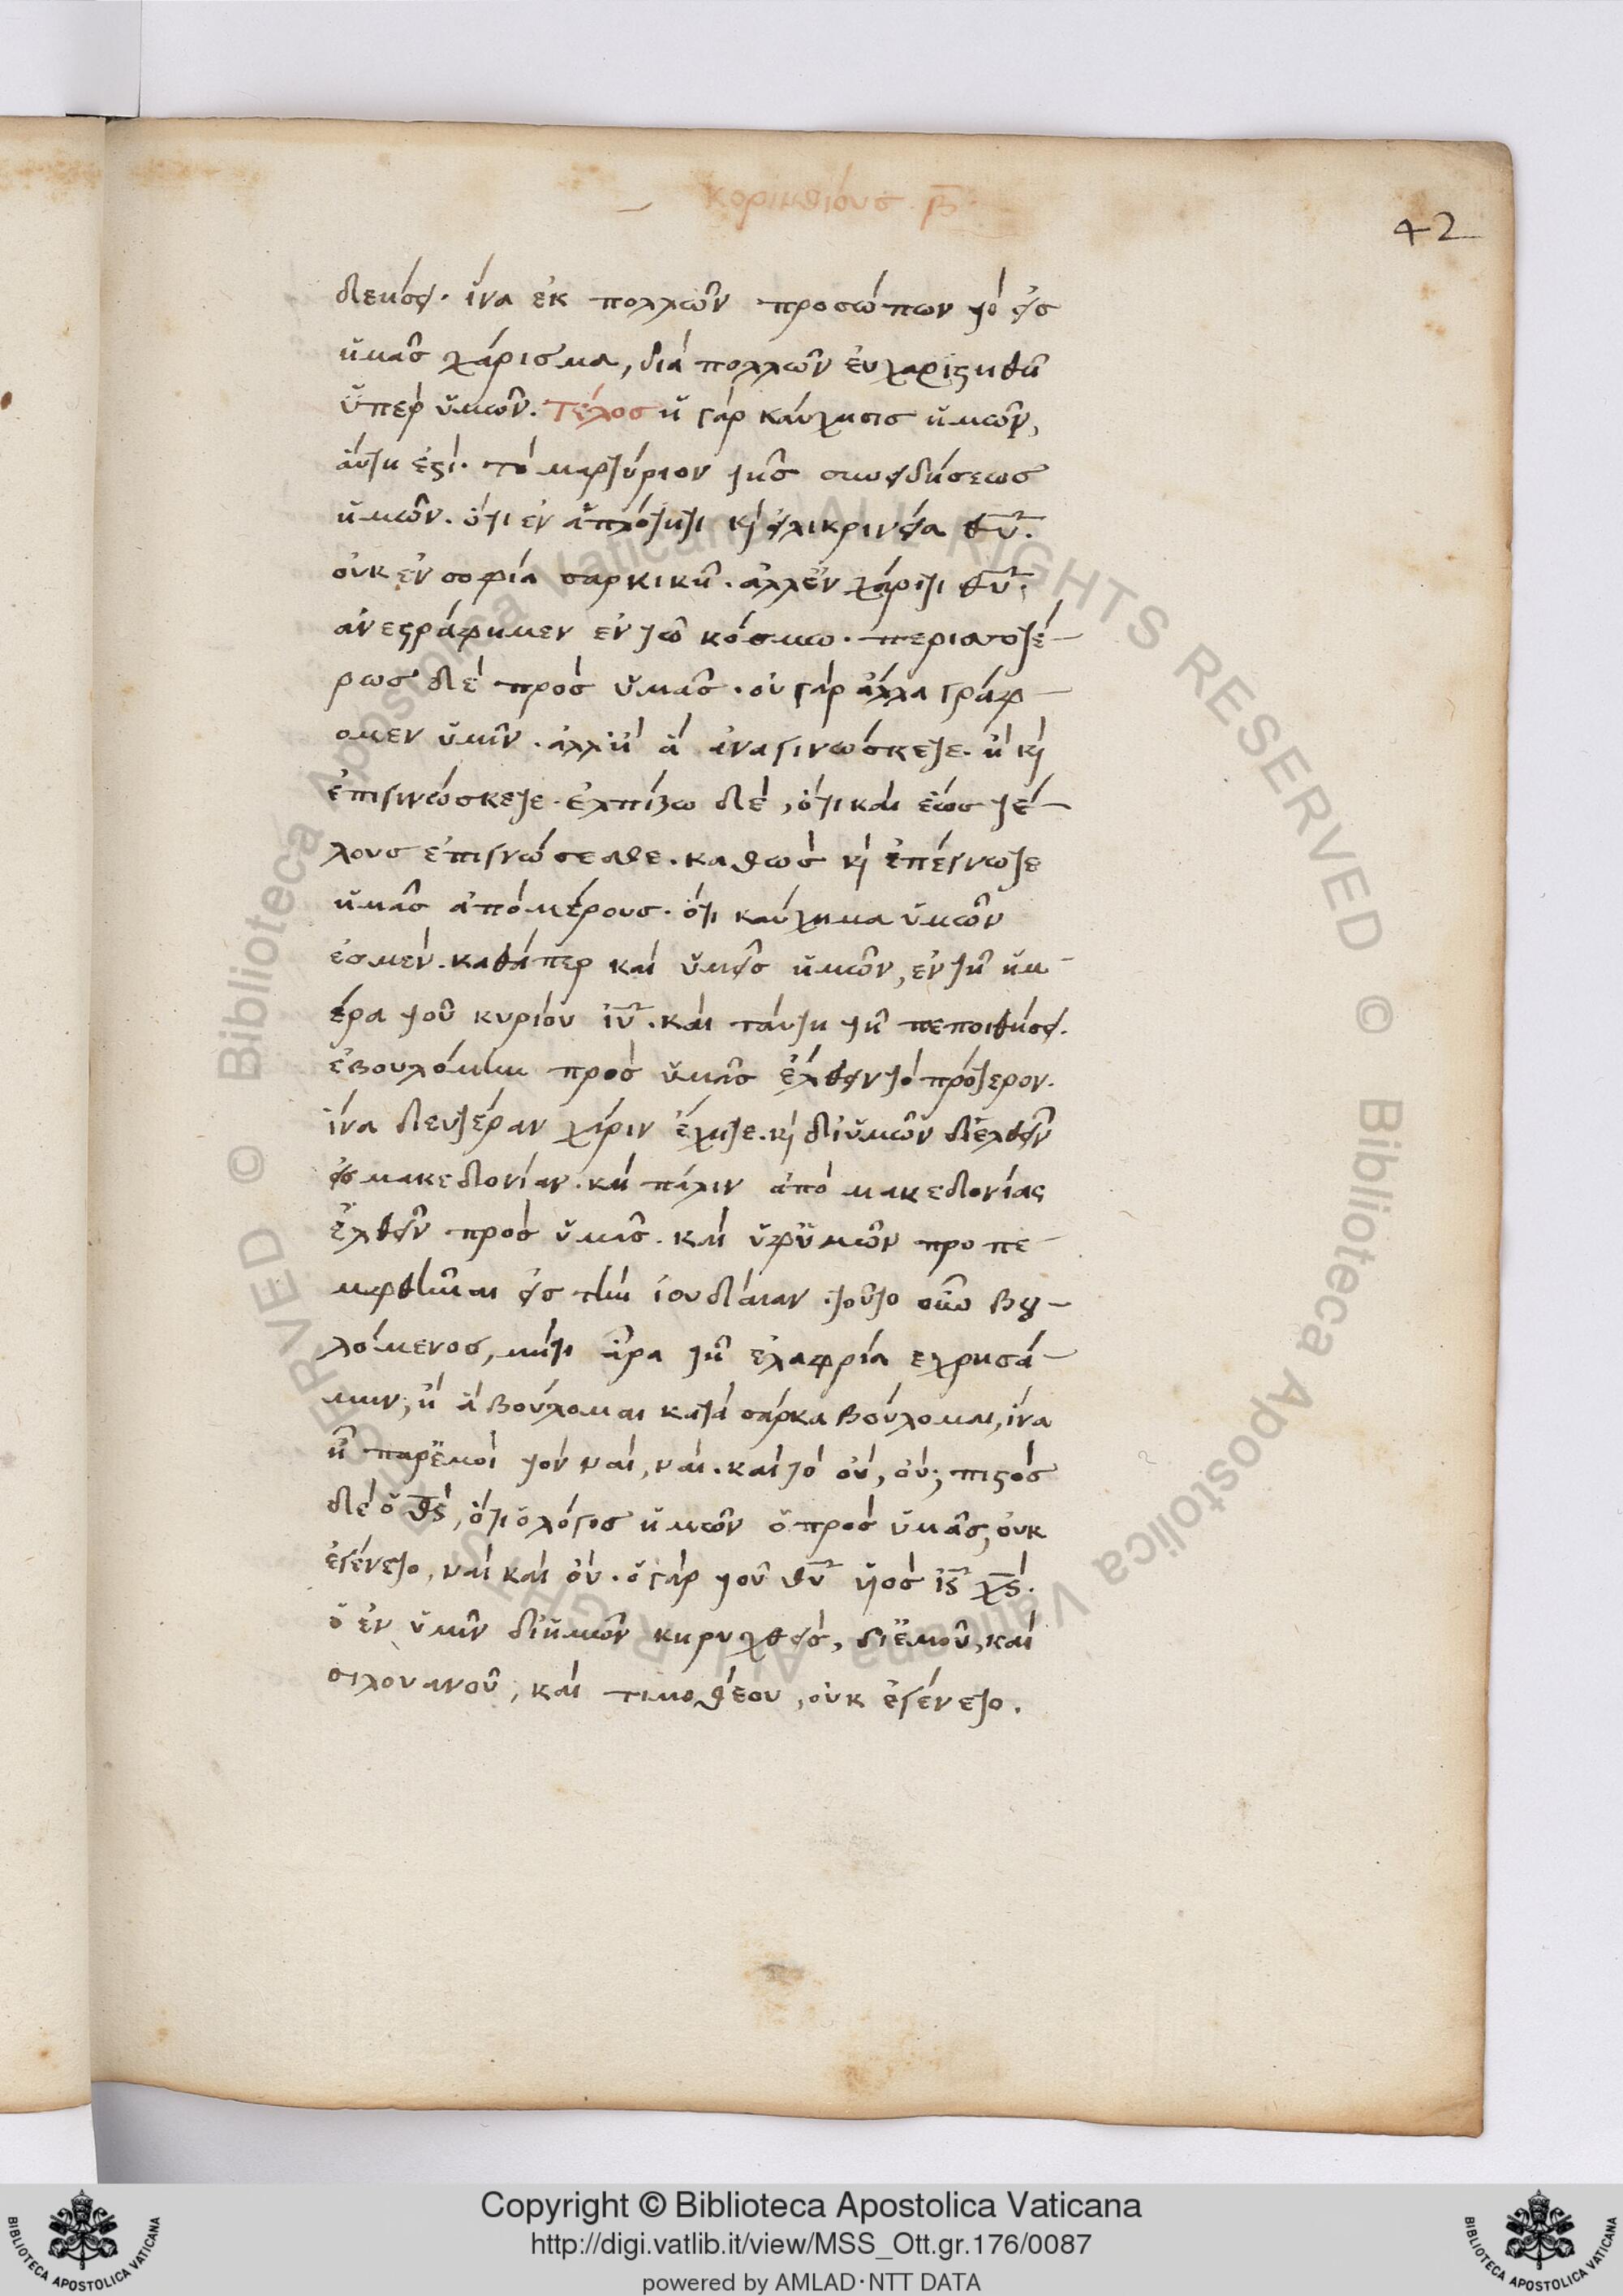 κορινθίους. β̅
42
δεήσει. ἵνα ἐκ πολλῶν προσώπων τὸ εἰς
ἡμᾶς χάρισμα, διὰ πολλῶν ἐυχαριστηθῆ
ὑπὲρ ὑμῶν. Τέλος ἡ γὰρ κάυχησις ἡμῶν,
ἅυτη ἐστὶ. τὸ μαρτύριον τῆς συνειδήσεως
ἡμῶν. ὅτι ἐν ἁπλότητι κὶ εἰλικρινεία θ̅υ̅.
οὐκ ἐν σοφία σαρκικῆ. ἀλλἐν χάριτι θ̅υ̅.
ἀνεστράφημεν ἐν τῶ κόσμω. περισσοτέ-
ρως δὲ πρὸς ὑμᾶς. οὐ γὰρ ἄλλα γράφ-
ομεν ὑμῖν. ἀλλἢ ἃ ἀναγινώσκετε. ἢ κὶ
ἐπιγινώσκετε. ἐλπίζω δὲ, ὅτι καὶ ἕως τέ-
λους ἐπιγνώσεσθε. καθὼς κὶ ἐπέγνωτε
ἡμᾶς ἀπὸ μέρους. ὅτι κάυχημα ὑμῶν
ἐσμὲν. καθάπερ καὶ ὑμεῖς ἡμῶν, ἐν τῆ ἡμ-
έρα τοῦ κυρίου ἰ̅υ̅. καὶ τάυτη τῆ πεποιθήσει.
ἐβουλόμην πρὸς ὑμᾶς ἐλθεῖν τὸ πρότερον.
ἵνα δευτέραν χάριν ἔχητε. κὶ δἰὑμῶν διελθεῖν
εἰς μακεδονίαν. καὶ πάλιν ἀπὸ μακεδονίας
ἐλθεῖν πρὸς ὑμᾶς. καὶ ὑφὑμῶν προπε-
μφθῆναι εἰς τὴν ἰουδαίαν. τοῦτο οὖν βου-
λόμενος, μήτι ἄρα τῆ ἐλαφρία ἐχρησά-
μην; ἢ ἃ βούλομαι κατὰ σάρκα βούλομαι, ἵνα
ἦ παρἐμοὶ τὸν ναὶ, ναὶ. καὶ τὸ οὐ, οὐ; πιστὸς
δὲ ὁ θ̅ς̅, ὅτι ὁ λόγος ἡμῶν ὁ πρὸς ὑμᾶς, οὐκ
ἐγένετο, ναὶ καὶ οὐ. ὁ γὰρ τοῦ θ̅υ̅ ὑιὸς ἰ̅ς̅ χ̅ς̅.
ὁ ἐν ὑμῖν δἰἡμῶν κηρυχθεὶς, δἰἐμοῦ, καὶ
σιλουανοῦ, καὶ τιμοθέου, οὐκ ἐγένετο.
© Biblioteca Apostolica Vaticana ALL RIGHTS RESERVED © Biblioteca Apostolica Vaticana ALL RIGHTS RESERVED
Copyright © Biblioteca Apostolica Vaticana
http://digi.vatlib.it/view/MSS_Ott.gr.176/0087
powered by AMLAD·NTT DATA
BIBLIOTECA APOSTOLICA VATICANA
BIBLIOTECA APOSTOLICA VATICANA